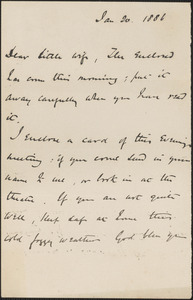 Jan 20. 1886
Dear little wife, The enclosed
has come this morning; put it
away carefully when you have read
it.
I enclose a card of this Evening's
meeting; if you come send in your
name to me, or look in at the
theatre. If you are not quite
well, stop safe at home this
cold foggy weather God bless you